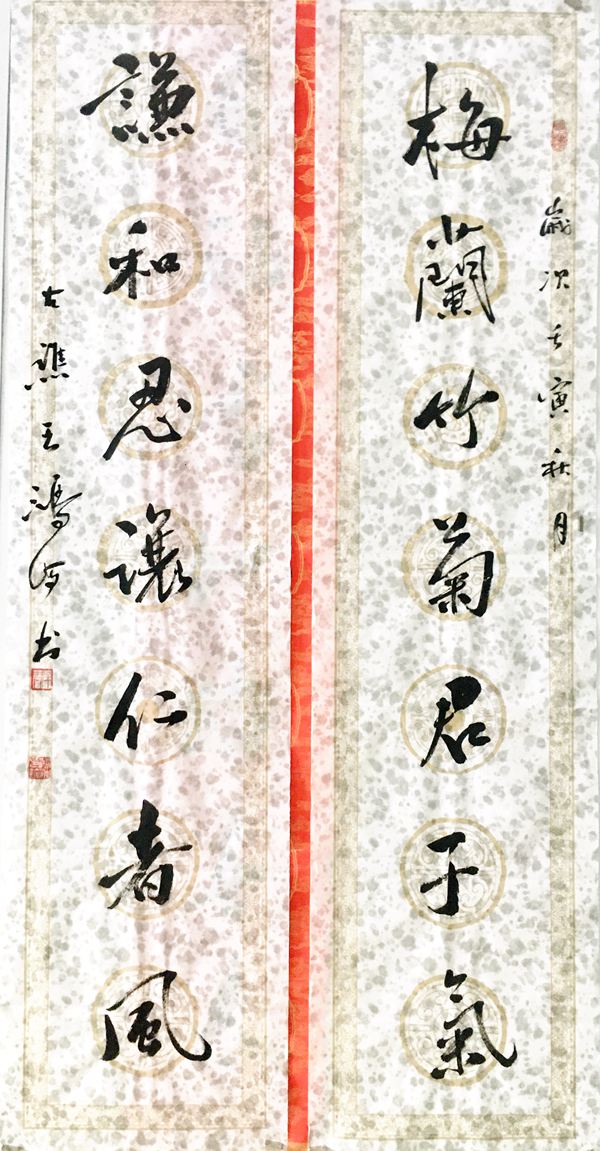 歲次壬寅秋月
梅蘭竹菊君子氣
謙和忍讓仁者風
古譙王鴻河书